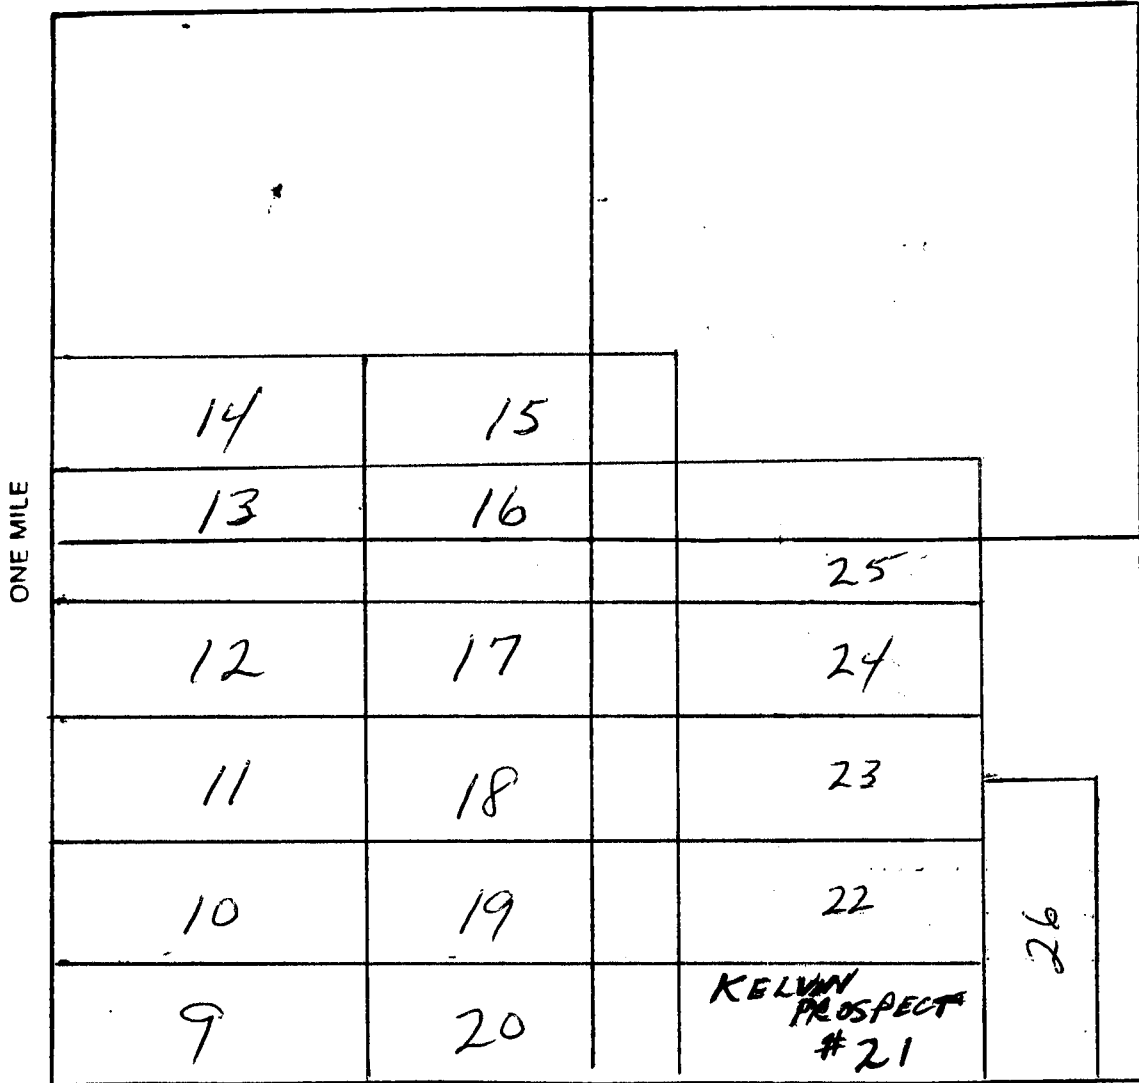 14 15
ONE MILE
13 16
25
12 17 24
11 18 23
10 19 22
26
9 20 KELVIN
PROSPECT
# 21